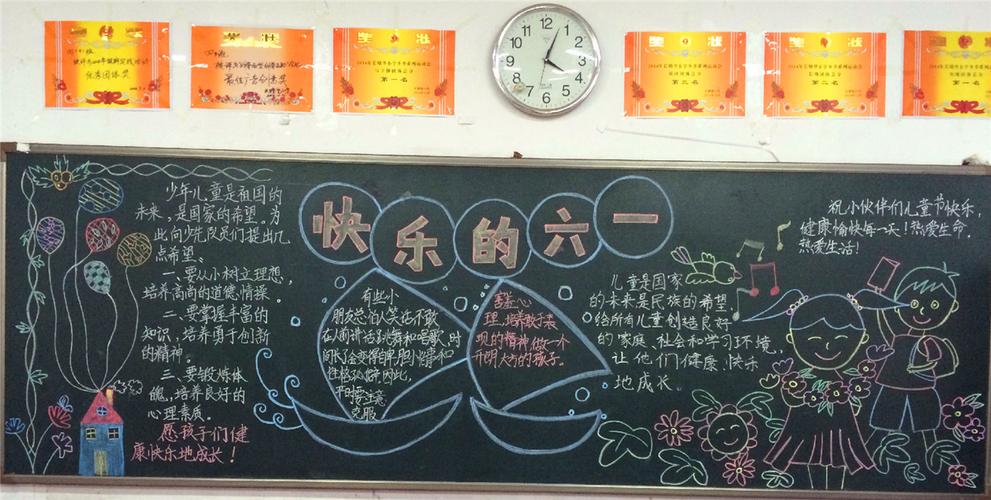 奖状
奖状
最佳行书创意奖
奖状
第一名
12
1
2
3
4
5
6
7
8
9
10
11
奖状
第三名
奖状
第二名
第一名
快乐的六一
少年儿童是祖国的
未来，是国家的希望。为
此向少先队员们提出几
点希望。
一、要从小树立理想，
培养高尚的道德情操。
二、要掌握丰富的
知识，培养勇于创新
的精神。
三、要锻炼体
魄，培养良好的
心理素质。
愿孩子们健
康快乐地成长！
有些小
朋友总怕人笑话不敢
在人前讲话跳舞和唱歌,时
间长了会变得自卑,胆小怕事和
因此,
克服
害羞心
理,培养敢于表
现的精神,做一个
开朗大方的孩子。
儿童是国家
的未来是民族的希望
给所有儿童创造良好
的家庭、社会和学习环境，
让他们健康、快乐
地成长。
祝小伙伴们儿童节快乐，
健康愉快每一天！热爱生命，
热爱生活！